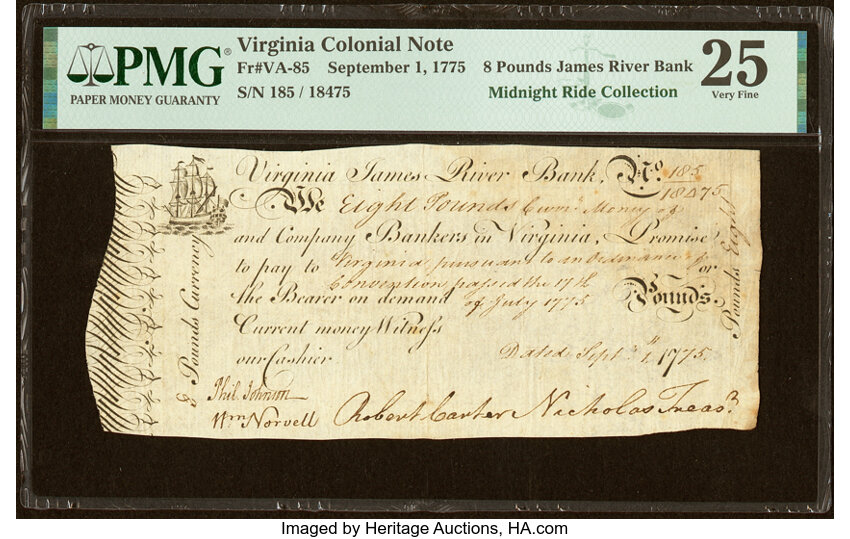 PMG®
PAPER MONEY GUARANTY
Virginia Colonial Note
Fr#VA-85 September 1, 1775 8 Pounds James River Bank
S/N 185 / 18475
Midnight Ride Collection
25
Very Fine
Virginia James River Bank, No. 185
18475
We Eight Pounds Curr. Money of
and Company Bankers in Virginia, Promise
to pay to Virginia pursuant to an Ordinance of or
Convention passed the 17th
the Bearer on demand of July 1775 Pounds
Current money Witness
our Cashier.
Dated Sept. 1, 1775.
8 Pounds Currency
Pounds Eight
Phil. Johnson
Wm Norvell Robert Carter Nicholas Treasr
Imaged by Heritage Auctions, HA.com